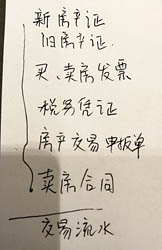 新房产证
旧房产证.
买、卖房发票
税务凭证
房产交易申报单
卖房合同
交易流水